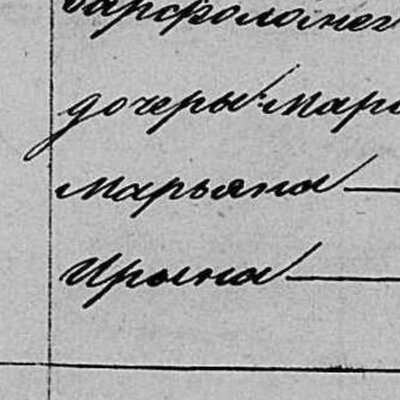 Варфоломег
дочеры Мари
Марьяна
Ирына